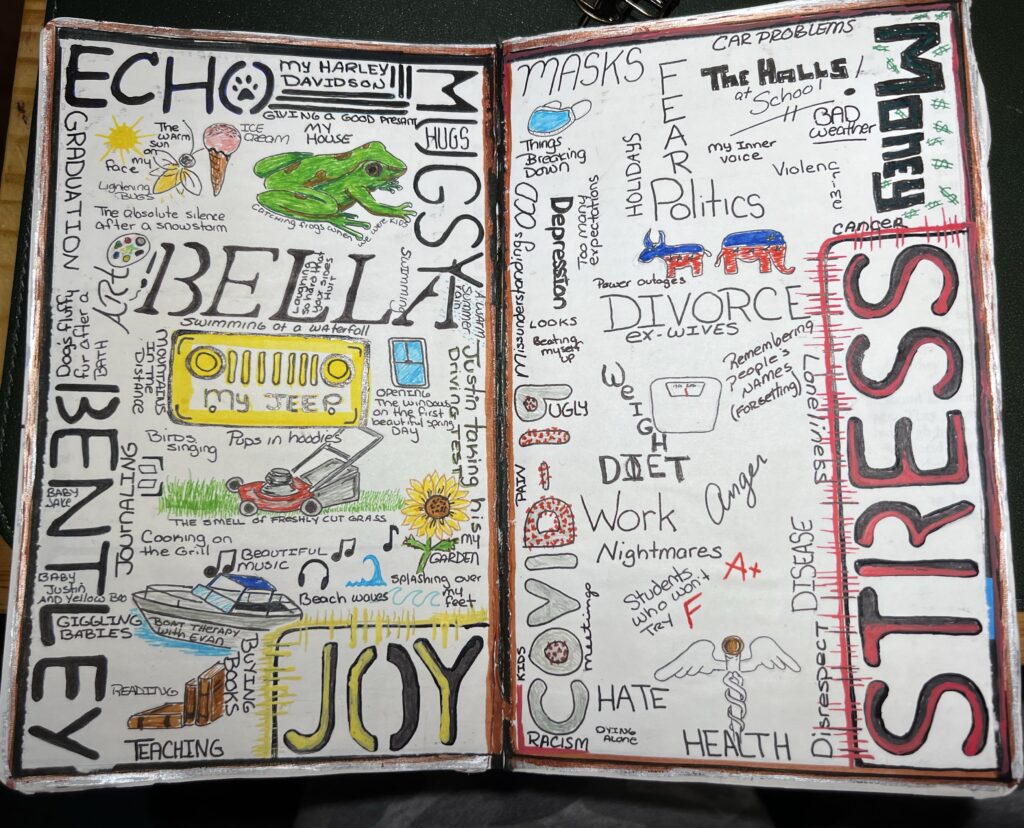 ECHO
MY HARLEY
DAVIDSON!
MUGSY
GIVING A GOOD PRESENT
HUGS
GRADUATION
The
warm
sun
on
my
Face
ICE
CREAM
MY
HOUSE
Lightening
BUGS
CATCHING FROGS WHEN WE WERE KIDS
The Absolute silence
after a snowstorm
ART
BELLA
Laughing
so hard that
your sides
Hurt
SWIMMING
A WARM
Summer
Rain
SWIMMING at a WATERFALL
Dogs Fluffy
fur after a
BATH
MOUNTAINS
IN THE
DISTANCE
MY JEEP
OPENING
The windows
on the first
beautiful spring
DAY
Justin taking his
Driving Test
BENTLEY
Birds
singing
Pops in hoodies
BABY
JAKE
JOURNALING
THE SMELL OF FRESHLY CUT GRASS
MY
GARDEN
Cooking on
the Grill
BEAUTIFUL
MUSIC
BABY
Justin
AND Yellow Bob
Beach waves
Splashing over
my
feet
GIGGLING
BABIES
BOAT THERAPY
WITH EVAN
BUYING
BOOKS
READING
TEACHING
JOY
MASKS
FEAR
CAR PROBLEMS
THE HALLS!
at School
Money
Things
Breaking
Down
HOLIDAYS
my Inner
voice
BAD
weather
Violence
Misunderstandings
Depression
Too many
expectations
Politics
cancer
Power outages
DIVORCE
ex-WIVES
STRESS
LOOKS
Beating
myself
up
Remembering
people's
NAMES
(Forgetting)
Loneliness
WEIGH
UGLY
DIET
COVID-19
PAIN
Work
Anger
Nightmares
DISEASE
A+
Students
Who won't
TRY F
meetings
KIDS
HATE
Disrespect
RACISM
DYING
ALONE
HEALTH